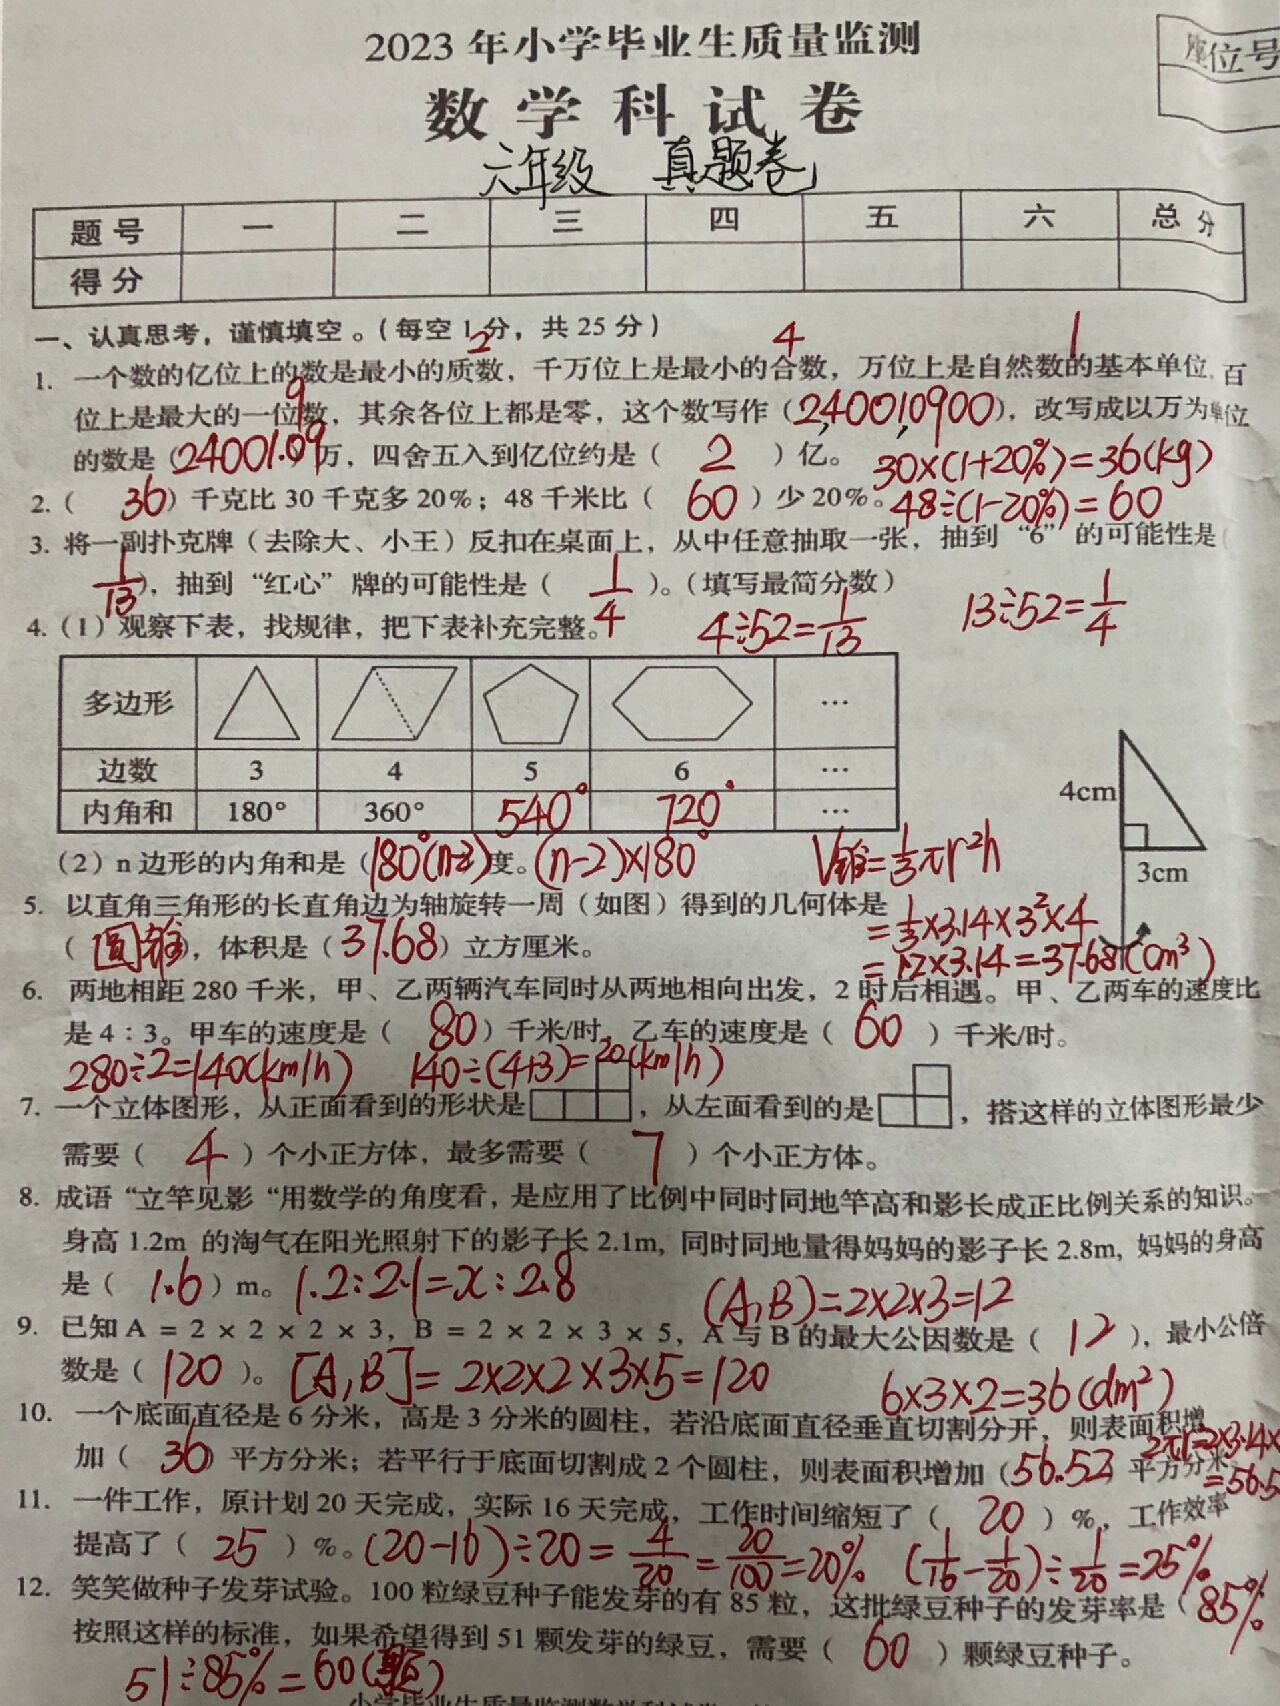 2023 年小学毕业生质量监测
座位号
数学科试卷
六年级 真题卷
题号 一 二 三 四 五 六 总分
得分
一、认真思考，谨慎填空。（每空 1 分，共 25 分）
2 4 1
1. 一个数的亿位上的数是最小的质数，千万位上是最小的合数，万位上是自然数的基本单位，百
9
位上是最大的一位数，其余各位上都是零，这个数写作（240010900），改写成以万为单位
的数是（24001.09）万，四舍五入到亿位约是（ 2 ）亿。 30×(1+20%)=36(kg)
2.（ 36 ）千克比 30 千克多 20%；48 千米比（ 60 ）少 20%。 48÷(1-20%)=60
3. 将一副扑克牌（去除大、小王）反扣在桌面上，从中任意抽取一张，抽到“6”的可能性是（
1/13），抽到“红心”牌的可能性是（ 1/4 ）。（填写最简分数）
4.（1）观察下表，找规律，把下表补充完整。 4÷52=1/13 13÷52=1/4
多边形 …
边数 3 4 5 6 …
内角和 180° 360° 540° 720° …
4cm
3cm
（2）n 边形的内角和是（180°(n-2)）度。(n-2)×180° V锥=1/3πr²h
5. 以直角三角形的长直角边为轴旋转一周（如图）得到的几何体是 =1/3×3.14×3²×4
（圆锥），体积是（37.68）立方厘米。 =12×3.14=37.68(cm³)
6. 两地相距 280 千米，甲、乙两辆汽车同时从两地相向出发，2 时后相遇。甲、乙两车的速度比
是 4：3。甲车的速度是（ 80 ）千米/时，乙车的速度是（ 60 ）千米/时。
280÷2=140(km/h) 140÷(4+3)=20(km/h)
7. 一个立体图形，从正面看到的形状是 ，从左面看到的是 ，搭这样的立体图形最少
需要（ 4 ）个小正方体，最多需要（ 7 ）个小正方体。
8. 成语“立竿见影“用数学的角度看，是应用了比例中同时同地竿高和影长成正比例关系的知识。
身高 1.2m 的淘气在阳光照射下的影子长 2.1m, 同时同地量得妈妈的影子长 2.8m, 妈妈的身高
是（ 1.6 ）m。 1.2:2.1=x:2.8 (A,B)=2×2×3=12
9. 已知 A = 2 × 2 × 2 × 3，B = 2 × 2 × 3 × 5，A 与 B 的最大公因数是（ 12 ），最小公倍
数是（ 120 ）。 [A,B]=2×2×2×3×5=120 6×3×2=36(dm²)
10. 一个底面直径是 6 分米，高是 3 分米的圆柱，若沿底面直径垂直切割分开，则表面积增
加（ 36 ）平方分米；若平行于底面切割成 2 个圆柱，则表面积增加（56.52）平方分米。
=56.5
11. 一件工作，原计划 20 天完成，实际 16 天完成，工作时间缩短了（ 20 ）%，工作效率
提高了（ 25 ）%。(20-16)÷20=4/20=20/100=20% (1/16-1/20)÷1/20=25%
12. 笑笑做种子发芽试验。100 粒绿豆种子能发芽的有 85 粒，这批绿豆种子的发芽率是（85%
按照这样的标准，如果希望得到 51 颗发芽的绿豆，需要（ 60 ）颗绿豆种子。
51÷85%=60(颗)